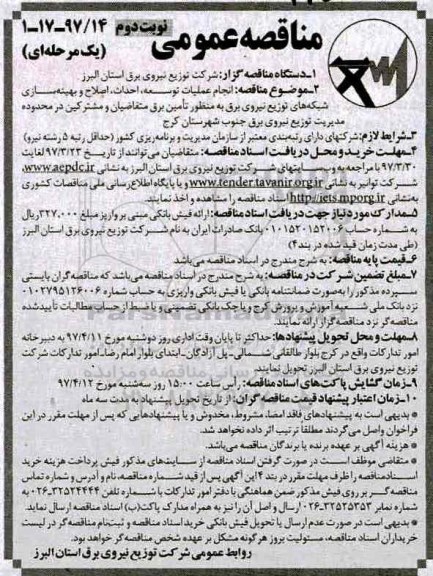 مناقصه عمومی
نوبت دوم
۱-۱۷-۹۷/۱۴
(یک مرحله‌ای)
۱-دستگاه مناقصه گزار: شرکت توزیع نیروی برق استان البرز
۲-موضوع مناقصه: انجام عملیات توسعه، احداث، اصلاح و بهینه‌سازی
شبکه‌های توزیع نیروی برق به منظور تأمین برق متقاضیان و مشترکین در محدوده
مدیریت توزیع نیروی برق جنوب شهرستان کرج
۳-شرایط لازم: شرکتهای دارای رتبه‌بندی معتبر از سازمان مدیریت و برنامه‌ریزی کشور (حداقل رتبه ۵ رشته نیرو)
۴-مهلت خرید و محل دریافت اسناد مناقصه: متقاضیان می‌توانند از تاریخ ۹۷/۳/۲۳ لغایت
۹۷/۳/۳۰ با مراجعه به وب سایتهای شرکت توزیع نیروی برق استان البرز به نشانی www.aepdc.ir،
شرکت توانیر به نشانی www.tender.tavanir.org.ir و یا پایگاه اطلاع‌رسانی ملی مناقصات کشوری
به نشانی http://iets.mporg.ir اسناد مناقصه را مشاهده و اخذ نمایند.
۵-مدارک مورد نیاز جهت دریافت اسناد مناقصه: ارائه فیش بانکی مبنی بر واریز مبلغ ۳۲۷.۰۰۰ ریال
به شماره حساب ۰۱۰۱۵۲۰۱۵۲۰۰۶ بانک صادرات ایران به نام شرکت توزیع نیروی برق استان البرز
(طی مدت زمان قید شده در بند ۴)
۶-قیمت پایه مناقصه: به شرح مندرج در اسناد مناقصه می‌باشد
۷-مبلغ تضمین شرکت در مناقصه: به شرح مندرج در اسناد مناقصه می‌باشد که مناقصه‌گران بایستی
سپرده مذکور را به‌صورت ضمانتنامه بانکی یا فیش بانکی واریزی به حساب شماره ۰۱۰۲۷۹۵۱۲۶۰۰۶
نزد بانک ملی شعبه آموزش و پرورش کرج و یا چک بانکی تضمینی و یا ضبط از حساب مطالبات تأییدشده
مناقصه‌گر نزد مناقصه گزار ارائه نمایند.
۸-مهلت و محل تحویل پیشنهادها: حداکثر تا پایان وقت اداری روز دوشنبه مورخ ۹۷/۴/۱۱ به دبیرخانه
امور تدارکات واقع در کرج بلوار طالقانی شمالی-پل آزادگان-ابتدای بلوار امام رضا-امور تدارکات شرکت
توزیع نیروی برق استان البرز تحویل نمایند.
۹-زمان گشایش پاکت‌های اسناد مناقصه: رأس ساعت ۱۵:۰۰ روز سه‌شنبه مورخ ۹۷/۴/۱۲
۱۰-زمان اعتبار پیشنهاد قیمت مناقصه گران: از تاریخ تحویل پیشنهاد به مدت سه ماه
* بدیهی است به پیشنهادهای فاقد امضا، مشروط، مخدوش و یا پیشنهادهایی که پس از مهلت مقرر در این
فراخوان واصل می‌گردند مطلقاً ترتیب اثر داده نخواهد شد.
* هزینه آگهی بر عهده برنده یا برندگان مناقصه می‌باشد.
* متقاضی موظف است در صورت گرفتن اسناد مناقصه از سایت‌های مذکور فیش پرداخت هزینه خرید
اسناد مناقصه را ظرف مهلت مقرر در بند ۴ این آگهی پس از قید شماره مناقصه، نام و آدرس و شماره تماس
مناقصه گر بر روی فیش مذکور ضمن هماهنگی با دفتر امور تدارکات با شماره تلفن ۳۲۵۲۴۴۴۴-۰۲۶ به
شماره نمابر ۳۲۵۲۵۳۵۳-۰۲۶ ارسال و اصل آن را نیز به همراه مدارک پاکت (ب) اسناد مناقصه ارسال نماید.
* بدیهی است در صورت عدم ارسال یا تحویل فیش بانکی خرید اسناد مناقصه و ثبت‌نام مناقصه‌گر در لیست
خریداران اسناد مناقصه، مسئولیت بروز هرگونه مشکل بر عهده شخص مناقصه‌گر خواهد بود.
روابط عمومی شرکت توزیع نیروی برق استان البرز